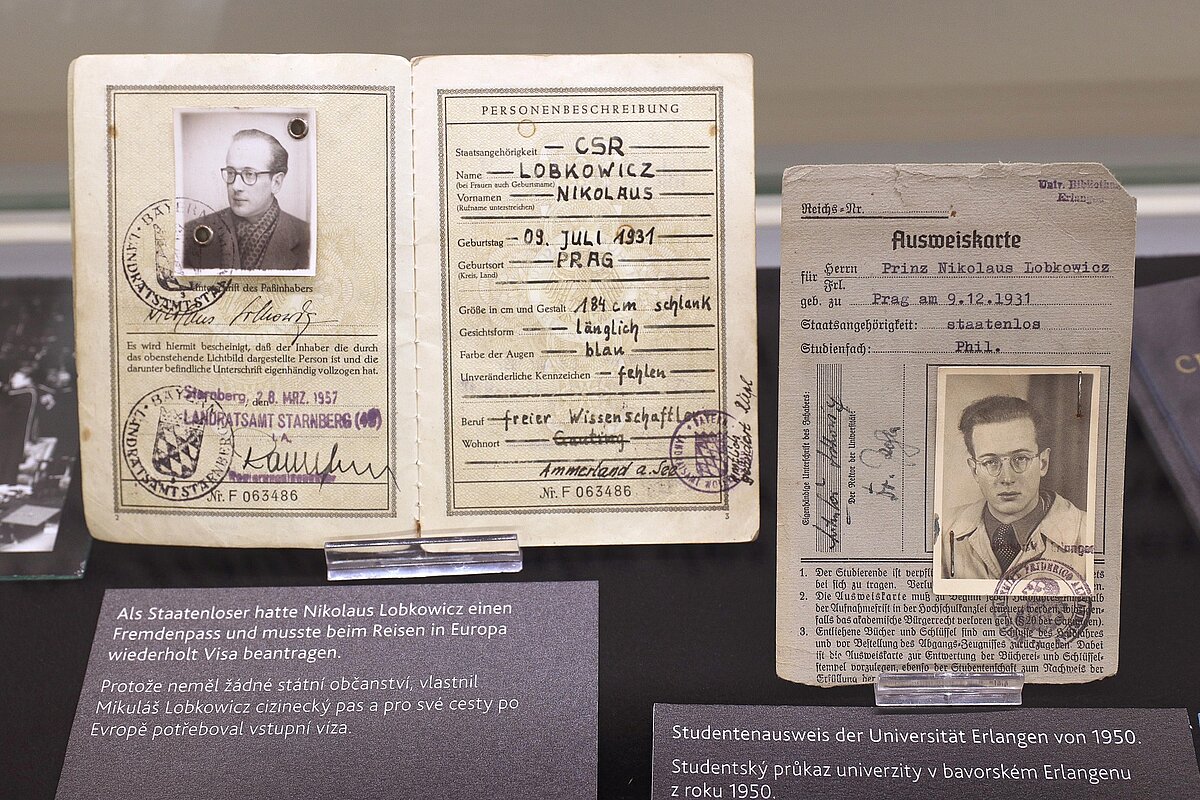 BAYERN
LANDRATSAMT STARNBERG
Unterschrift des Paßinhabers
Nikolaus Lobkowicz
Es wird hiermit bescheinigt, daß der Inhaber die durch
das obenstehende Lichtbild dargestellte Person ist und die
darunter befindliche Unterschrift eigenhändig vollzogen hat.
Starnberg, den 28. MRZ. 1957
LANDRATSAMT STARNBERG
I. A.
BAYERN
LANDRATSAMT STARNBERG
Nr. F 063486
2
PERSONENBESCHREIBUNG
Staatsangehörigkeit — CSR
Name — LOBKOWICZ
(bei Frauen auch Geburtsname)
Vornamen — NIKOLAUS
(Rufname unterstreichen)
Geburtstag — 09. JULI 1931
Geburtsort — PRAG
(Kreis, Land)
Größe in cm und Gestalt 184 cm schlank
Gesichtsform — länglich
Farbe der Augen — blau
Unveränderliche Kennzeichen — fehlen
Beruf — freier Wissenschaftler
Wohnort — Gauting
Ammerland a. See
Nr. F 063486
3
Univ. Bibliothek
Erlangen
Reichs-Nr.
Ausweiskarte
für Herrn Prinz Nikolaus Lobkowicz
Frl.
geb. zu Prag am 9.12.1931
Staatsangehörigkeit: staatenlos
Studienfach: Phil.
Eigenhändige Unterschrift des Inhabers:
Der Rektor der Universität
1. Der Studierende ist
bei sich zu tragen.
2. Die Ausweiskarte muß zu Beginn jedes
der Aufnahmefrist in der Hochschulkanzlei erneuert werden,
falls das akademische Bürgerrecht verloren geht
3. Entliehene Bücher und Schlüssel sind am Schlusse des
und vor Bestellung des Abgangs-Zeugnisses zurückzugeben. Dabei
ist die Ausweiskarte zur Entwertung der Bücherei- und Schlüssel-
stempel vorzulegen, ebenso der Studentenschaft zum Nachweis der
Erfüllung der
Als Staatenloser hatte Nikolaus Lobkowicz einen
Fremdenpass und musste beim Reisen in Europa
wiederholt Visa beantragen.
Protože neměl žádné státní občanství, vlastnil
Mikuláš Lobkowicz cizinecký pas a pro své cesty po
Evropě potřeboval vstupní víza.
Studentenausweis der Universität Erlangen von 1950.
Studentský průkaz univerzity v bavorském Erlangenu
z roku 1950.